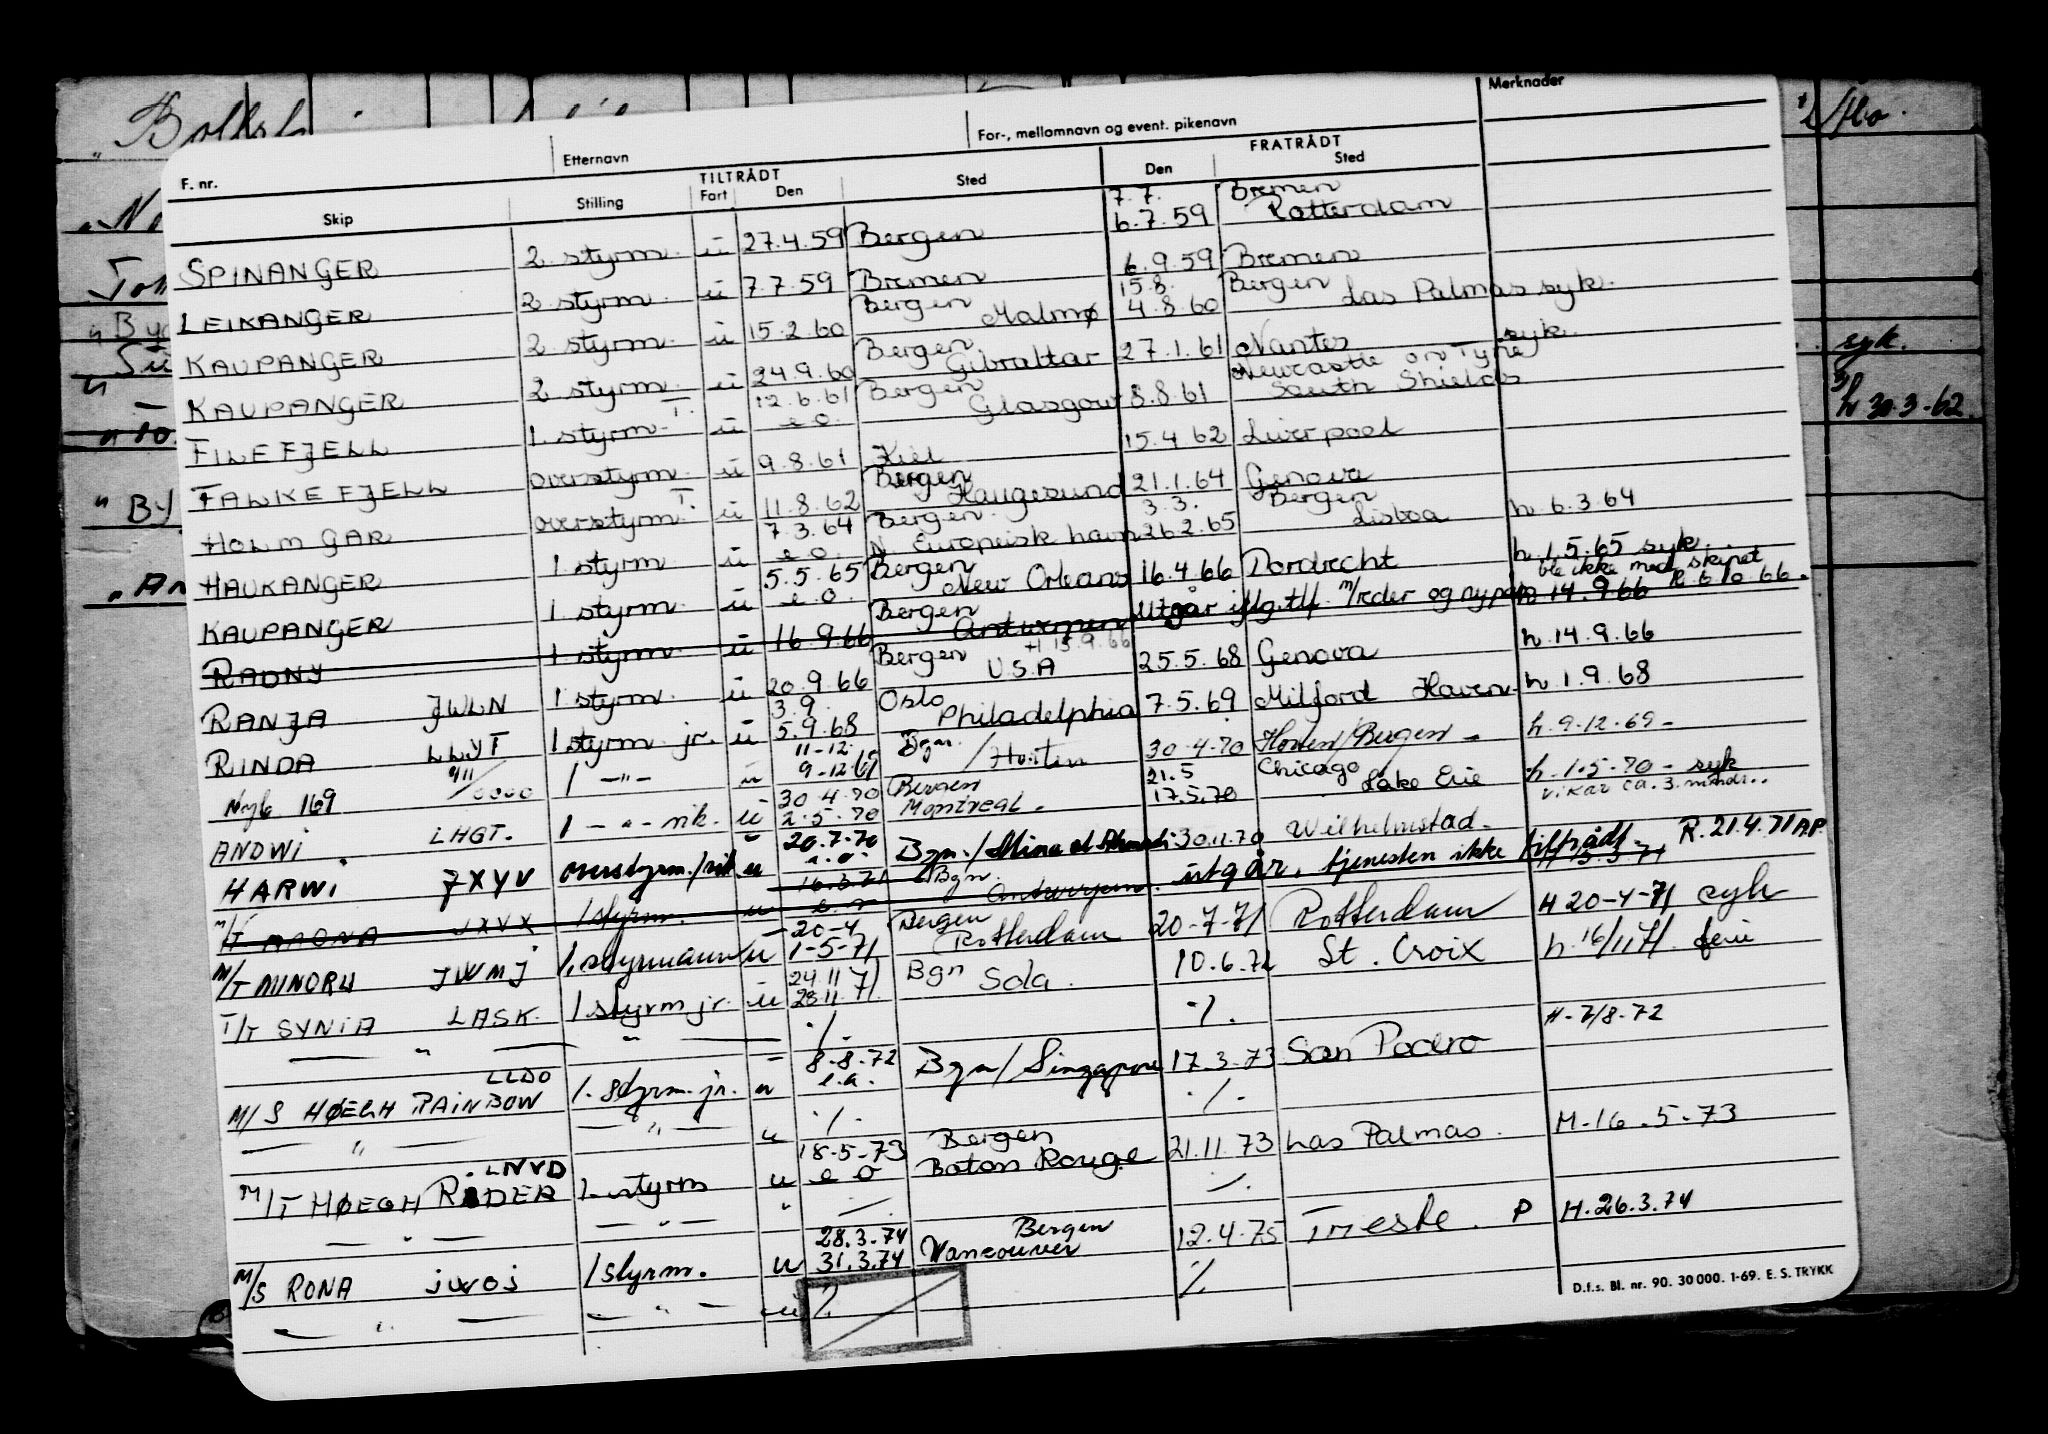 Merknader
F. nr. Etternavn For-, mellomnavn og event. pikenavn
TILTRÅDT FRATRÅDT
Skip Stilling Fart Den Sted Den Sted
7.7. Bremen
SPINANGER 2. styrm. u 27.4.59 Bergen 6.7.59 Rotterdam
LEIKANGER 2 styrm. u 7.7.59 Bremen 6.9.59 Bremen
Bergen 15.8. Bergen
KAUPANGER 2 styrm. u 15.2.60 Malmø 4.8.60 Las Palmas syk.
Bergen
KAUPANGER 2 styrm. u 24.9.60 Gibraltar 27.1.61 Nantes syk.
T. 12.6.61 Bergen Newcastle on Tyne
FILEFJELL 1. styrm. u e.o. Glasgow 8.8.61 South Shields
FALKEFJELL overstyrm. u 9.8.61 Kiel 15.4.62 Liverpool
T. Bergen
HOLMGAR overstyrm. u 11.8.62 Haugesund 21.1.64 Genova
7.3.64 Bergen 3.3. Bergen
HAUKANGER 1 styrm. u e.o. N. Europeisk havn 26.2.65 Lisboa h. 6.3.64
5.5.65 Bergen
KAUPANGER 1. styrm. u e.o. New Orleans 16.4.66 Dordrecht h. 1.5.65 syk.
Bergen ble ikke med skipet
RADNY 1. styrm. u 16.9.66 Antwerpen Utgår iflg. tlf. m/reder og ny h 14.9.66 R. 6.10.66.
Bergen H 15.9.66
RANJA JWLN 1. styrm. u 20.9.66 U.S.A 25.5.68 Genova h. 14.9.66
3.9. Oslo
RINDA LLYT 1 styrm. jr. u 5.9.68 Philadelphia 7.5.69 Milford Haven h. 1.9.68
11-12. Bgn.
Nyb. 169 1 -"- u 9-12-69 /Horten 30.4.70 Horten/Bergen h. 9.12.69
30.4.70 Bergen 21.5 Chicago
ANDWI LHGT. 1 - " - vik. u 2.5.70 Montreal. 17.5.70 Lake Erie h. 1.5.70 - syk
vikar ca. 3. mndr..
20.7.70
HARWI JXYV overstyrm./vik u e.o. Bgn./Mina al Ahmadi 30.11.70 Wilhelmstad.
16.3.71 Bgn.
M/T 1 styrm. u Antwerpen. utgår, tjenesten ikke tiltrådt R. 21.4.71 AP.
20-4 Bergen
M/T MINORU JWMJ 1. styrmann u 1-5-71 Rotterdam 20-7-71 Rotterdam H 20-4-71 syk
24.11 Bgn
T/T SYNIA LASK. 1 styrm jr. u 28.11.71. Sola. 10.6.72 St. Croix h. 16/11 71. ferie
— " — — " — ./. ./.
LLDO 8-8-72
M/S HØEGH RAINBOW 1. styrm. jr. u e.o. Bgn/Singapore 17.3.73 San Pedro H-7/8-72
— " — — " — u ./. ./.
LNVD 18-5-73 Bergen
M/T HØEGH RIDER 1. styrm u e o Baton Rouge 21.11.73 Las Palmas. H-16.5-73
— " — — " — " ./. ./.
28.3.74 Bergen
M/S RONA JWOJ 1 styrm. u 31.3.74 Vancouver 12.4.75 Trieste. P H.26.3.74
— " — — " — u ./. ./.
D.f.s. Bl. nr. 90. 30 000. 1-69. E. S. TRYKK
syk.
h 30.3-62.